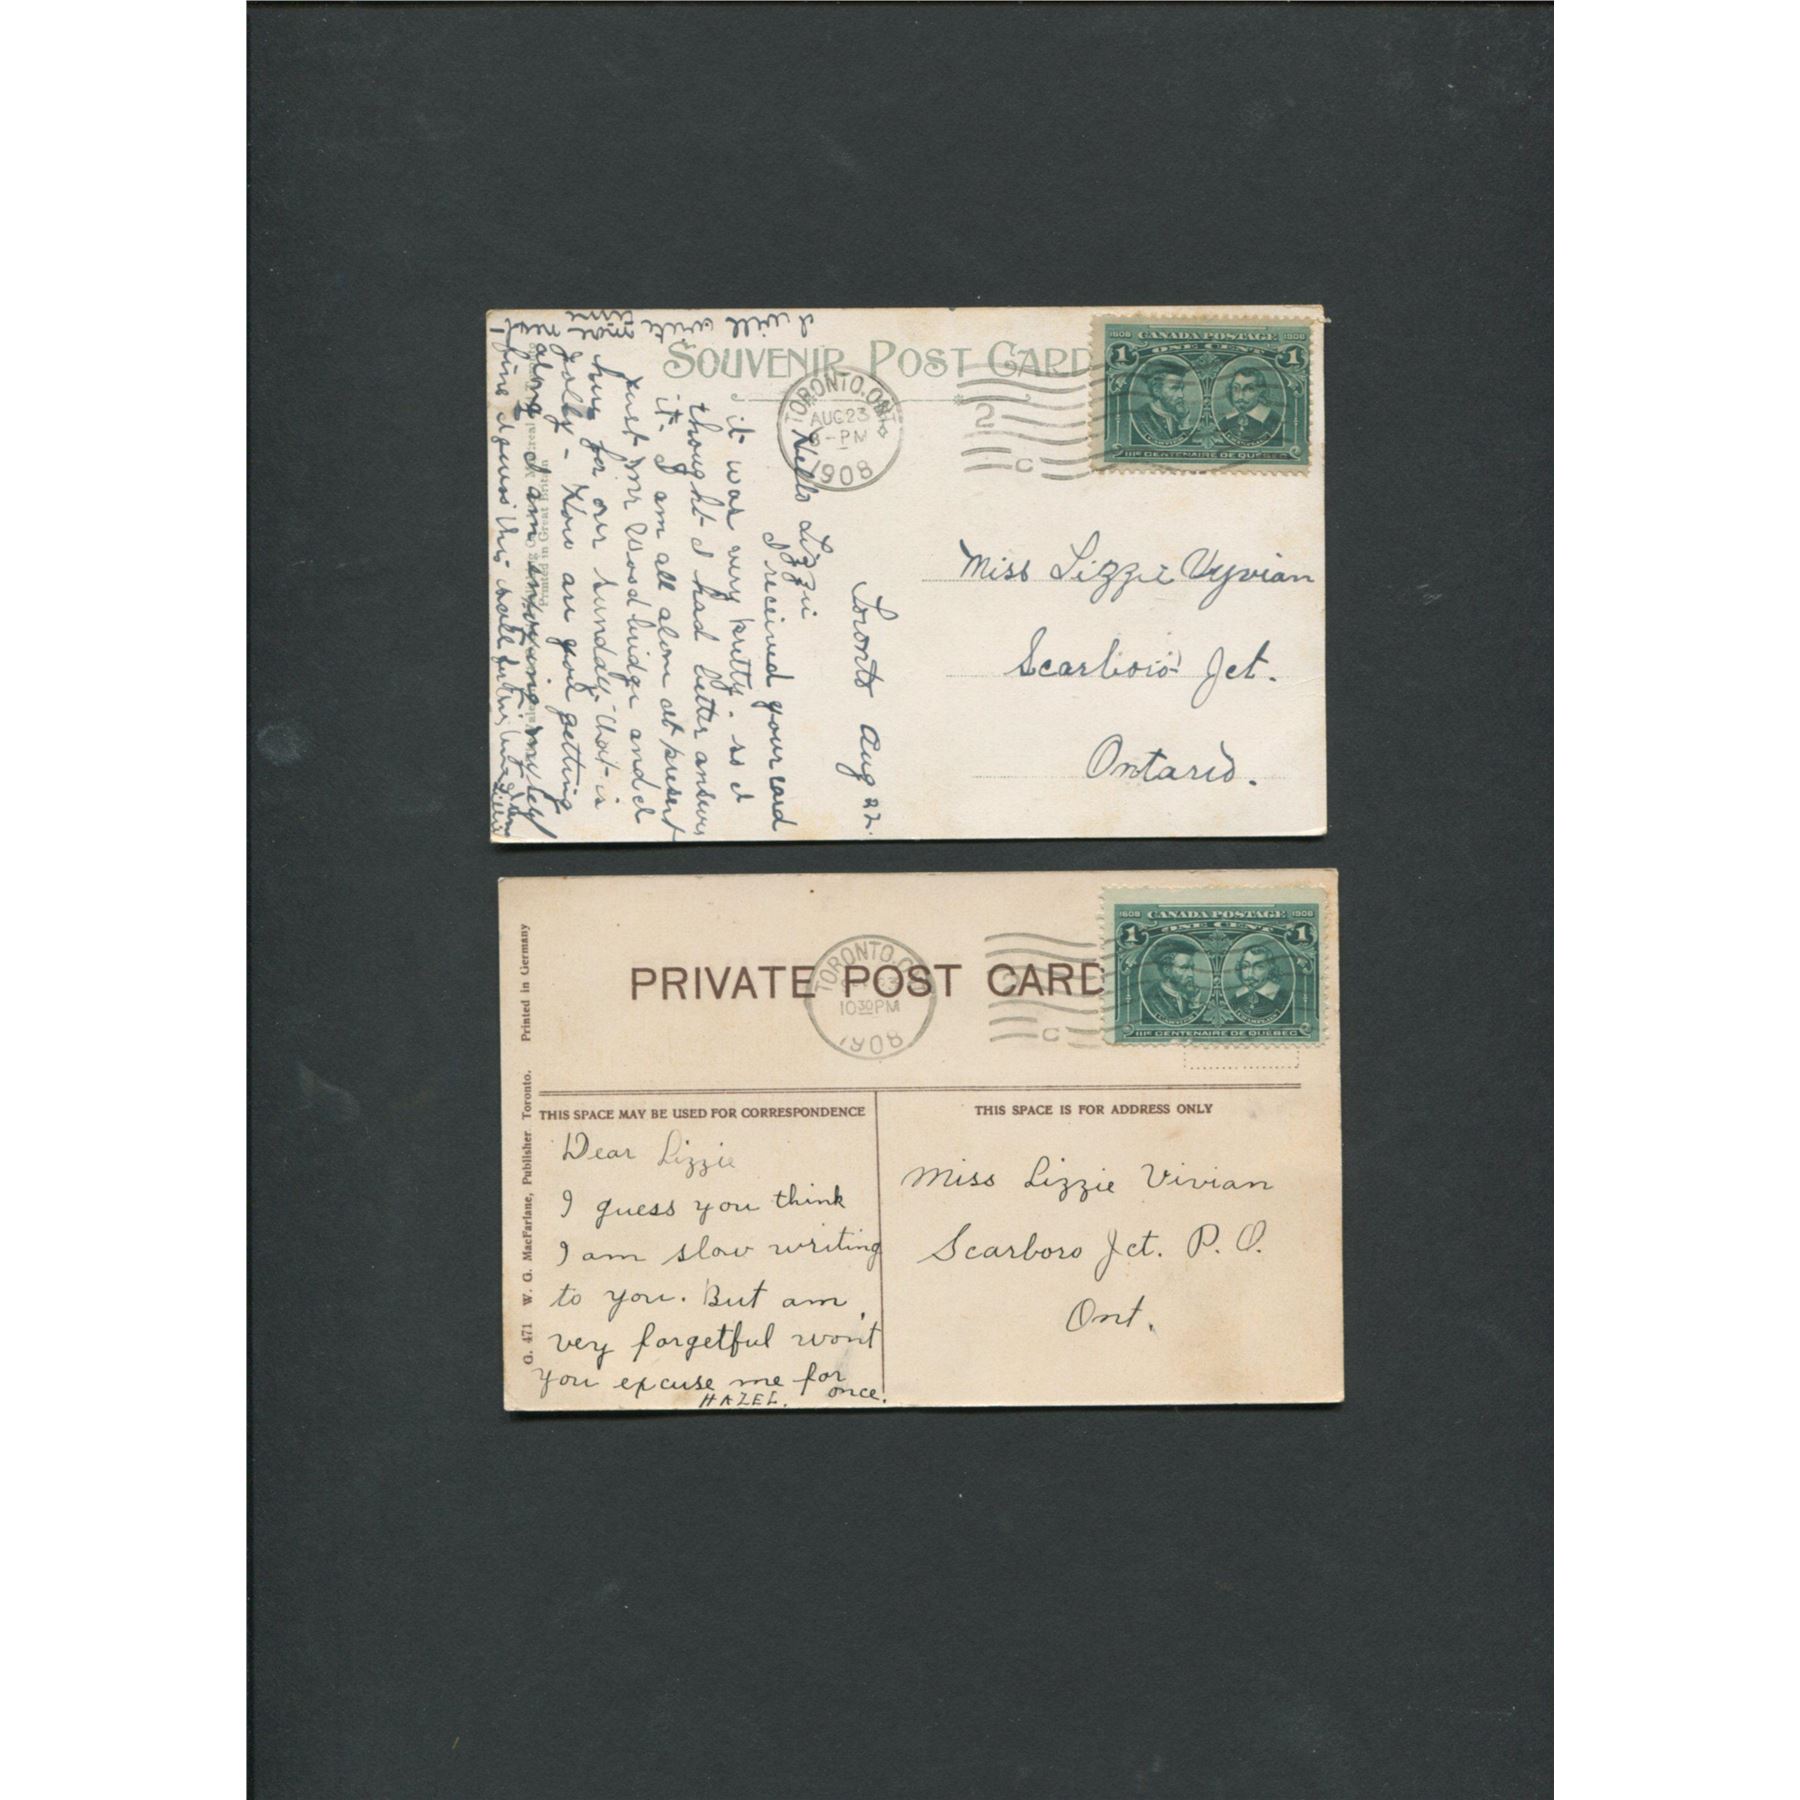 SOUVENIR POST CARD
TORONTO. ONT
AUG 23
8-PM
1908
C
1608 CANADA POSTAGE 1908
1 ONE CENT 1
CARTIER CHAMPLAIN
IIIE CENTENAIRE DE QUEBEC
Miss Lizzie Vyvian
Scarboro Jct.
Ontario.
Toronto Aug 22.
Hello Lizzie
I received your card
it was very pretty. so I
thought I had better answer
it. I am all alone at present
just Mr Woodbridge and I
for our Sunday, that is
jolly - How are you getting
along I am enjoying myself
fine I guess this will
I will write
more next
time
Lillie
Printed in Great Britain
PRIVATE POST CARD
TORONTO. O
10 30 PM
1908
C
1608 CANADA POSTAGE 1908
1 ONE CENT 1
CARTIER CHAMPLAIN
IIIE CENTENAIRE DE QUEBEC
G. 471 W. G. MacFarlane, Publisher Toronto. Printed in Germany
THIS SPACE MAY BE USED FOR CORRESPONDENCE
THIS SPACE IS FOR ADDRESS ONLY
Dear Lizzie
I guess you think
I am slow writing
to you. But am
very forgetful won't
you excuse me for
once.
HAZEL.
Miss Lizzie Vivian
Scarboro Jct. P. O.
Ont.